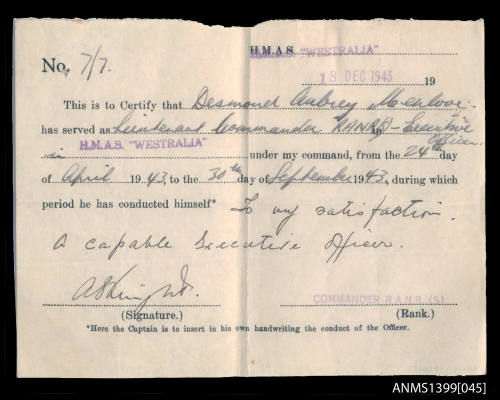 H.M.A.S. "WESTRALIA"
No. 7/7.
18 DEC 1943 19
This is to Certify that Desmond Aubrey Menlove
has served as Lieutenant Commander RANR(S) - Executive
Officer
in H.M.A.S. "WESTRALIA" under my command, from the 24th day
of April 1943, to the 30th day of September 1943, during which
period he has conducted himself* To my satisfaction.
A capable Executive Officer.
(Signature.)
COMMANDER R.A.N.R.(S)
(Rank.)
*Here the Captain is to insert in his own handwriting the conduct of the Officer.
ANMS1399[045]